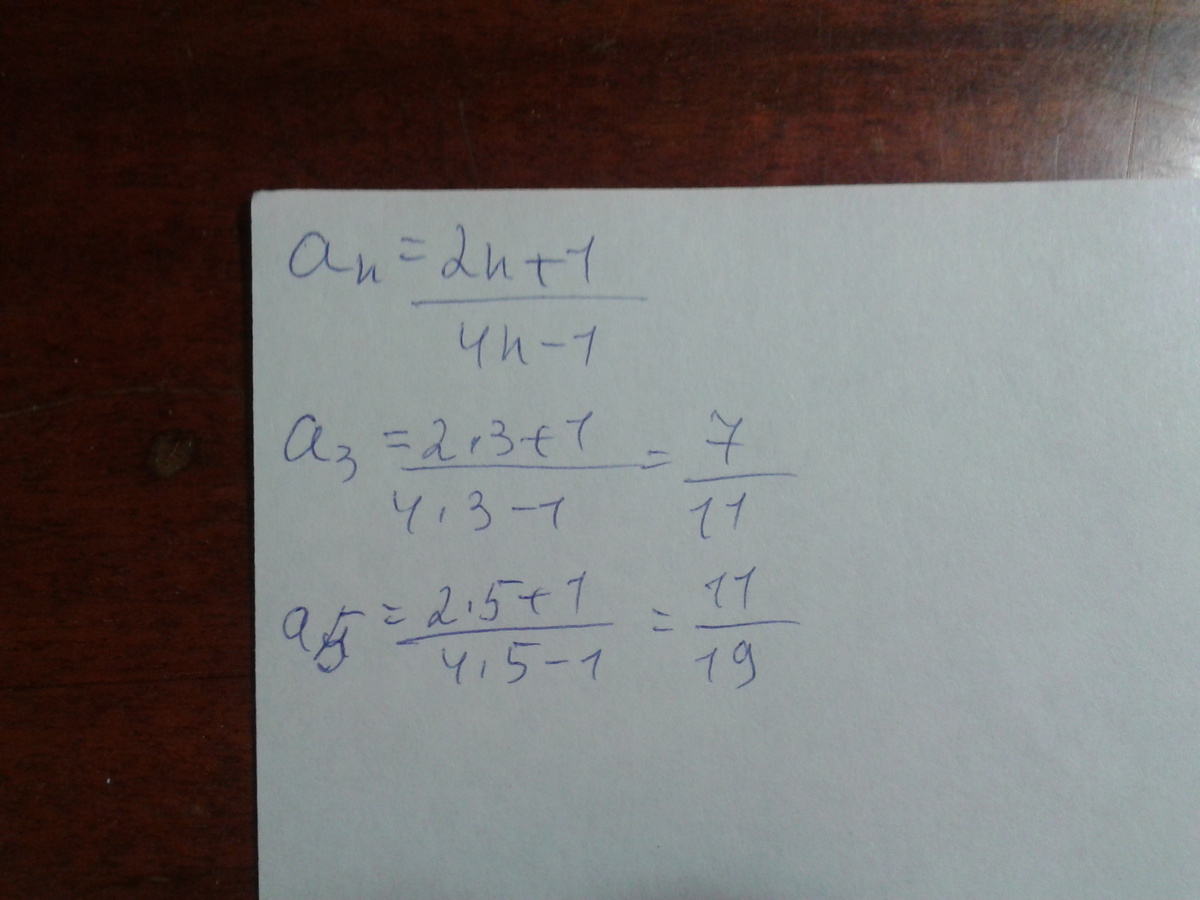 aₙ = (2n+1)/(4n-1)
a₃ = (2·3+1)/(4·3-1) = 7/11
a₅ = (2·5+1)/(4·5-1) = 11/19